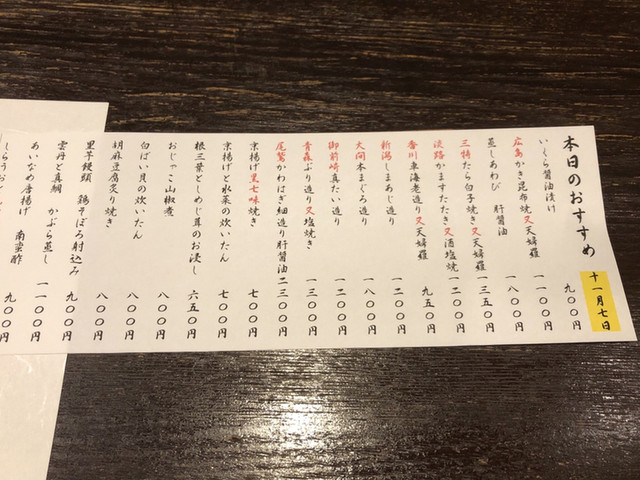 本日のおすすめ 十一月七日
いくら醤油漬け 九〇〇円
広島かき昆布焼又天婦羅 一一〇〇円
蒸しあわび 肝醤油 一八〇〇円
三特たら白子焼き又天婦羅 一三五〇円
淡路かますたたき又酒塩焼 一二〇〇円
香川車海老造り又天婦羅 九五〇円
新潟しまあじ造り 一二〇〇円
大間本まぐろ造り 一八〇〇円
御前崎真たい造り 一二〇〇円
青森ぶり造り又塩焼き 一三〇〇円
尾鷲かわはぎ細造り肝醤油 二三〇〇円
京揚げ黒七味焼き 七〇〇円
京揚げと水菜の炊いたん 七〇〇円
根三葉としめじ茸のお浸し 六五〇円
おじゃこ山椒煮 八〇〇円
白ばい貝の炊いたん 八〇〇円
胡麻豆腐炙り焼き 八〇〇円
里芋饅頭 鶏そぼろ射込み 九〇〇円
雲丹と真鯛 かぶら蒸し 一一〇〇円
あいなめ唐揚げ 南蛮酢 九〇〇円
しらうお